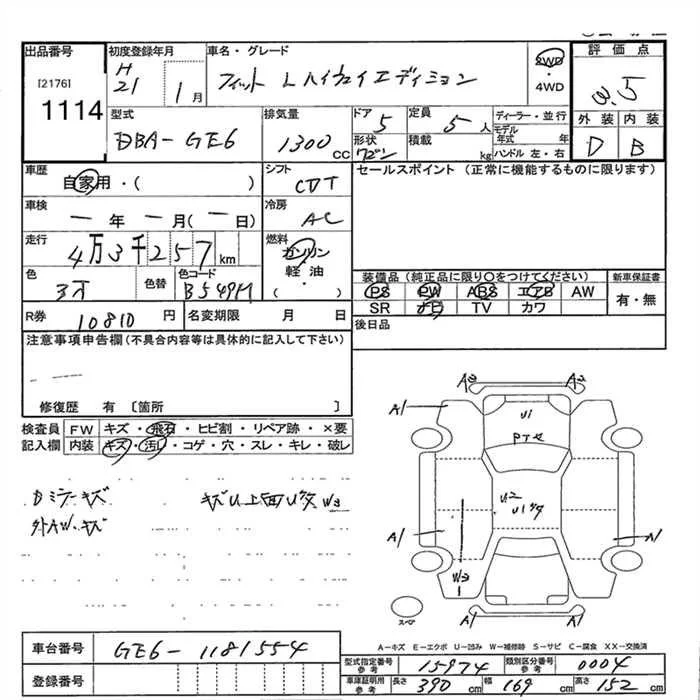 出品番号
[2176]
1114
初度登録年月
H21 1月
車名・グレード
フィット Lハイウェイエディション
2WD
・
4WD
評価点
3.5
外装 内装
D B
型式
DBA-GE6
排気量
1300 CC
ドア 5
定員 5人
形状 ワゴン
積載 kg
ディーラー・並行
モデル年式 年
ハンドル 左・右
車歴
自家用・( )
シフト
CVT
セールスポイント (正常に機能するものに限ります)
車検
ー年ー月(ー日)
冷房
AC
走行
4万3千257km
燃料
ガソリン
軽油・
( )
色
色替
色コード
B549M
装備品 (純正品に限り○をつけてください)
PS PW ABS エアB AW
SR ナビ TV カワ
新車保証書
有・無
R券 10810円
名変期限 月 日
後日品
注意事項申告欄(不具合内容等は具体的に記入して下さい)
修復歴 有〔箇所 〕
検査員 FW キズ・飛石・ヒビ割・リペア跡・×要
記入欄 内装 キズ・汚れ・コゲ・穴・スレ・キレ・破レ
Dミラーキズ
外AWキズ
A1 A2 A2 A1
U1
U2
A1 A1
W3
A1 A1
スペア
A-キズ E-エクボ U-凹み W-補修跡 S-サビ C-腐食 XX-交換済
車台番号 GE6-1181554
登録番号
型式指定番号 参考 15974
類別区分番号 参考 0004
車庫証明用 参考 長さ 390cm 幅 169cm 高さ 152cm